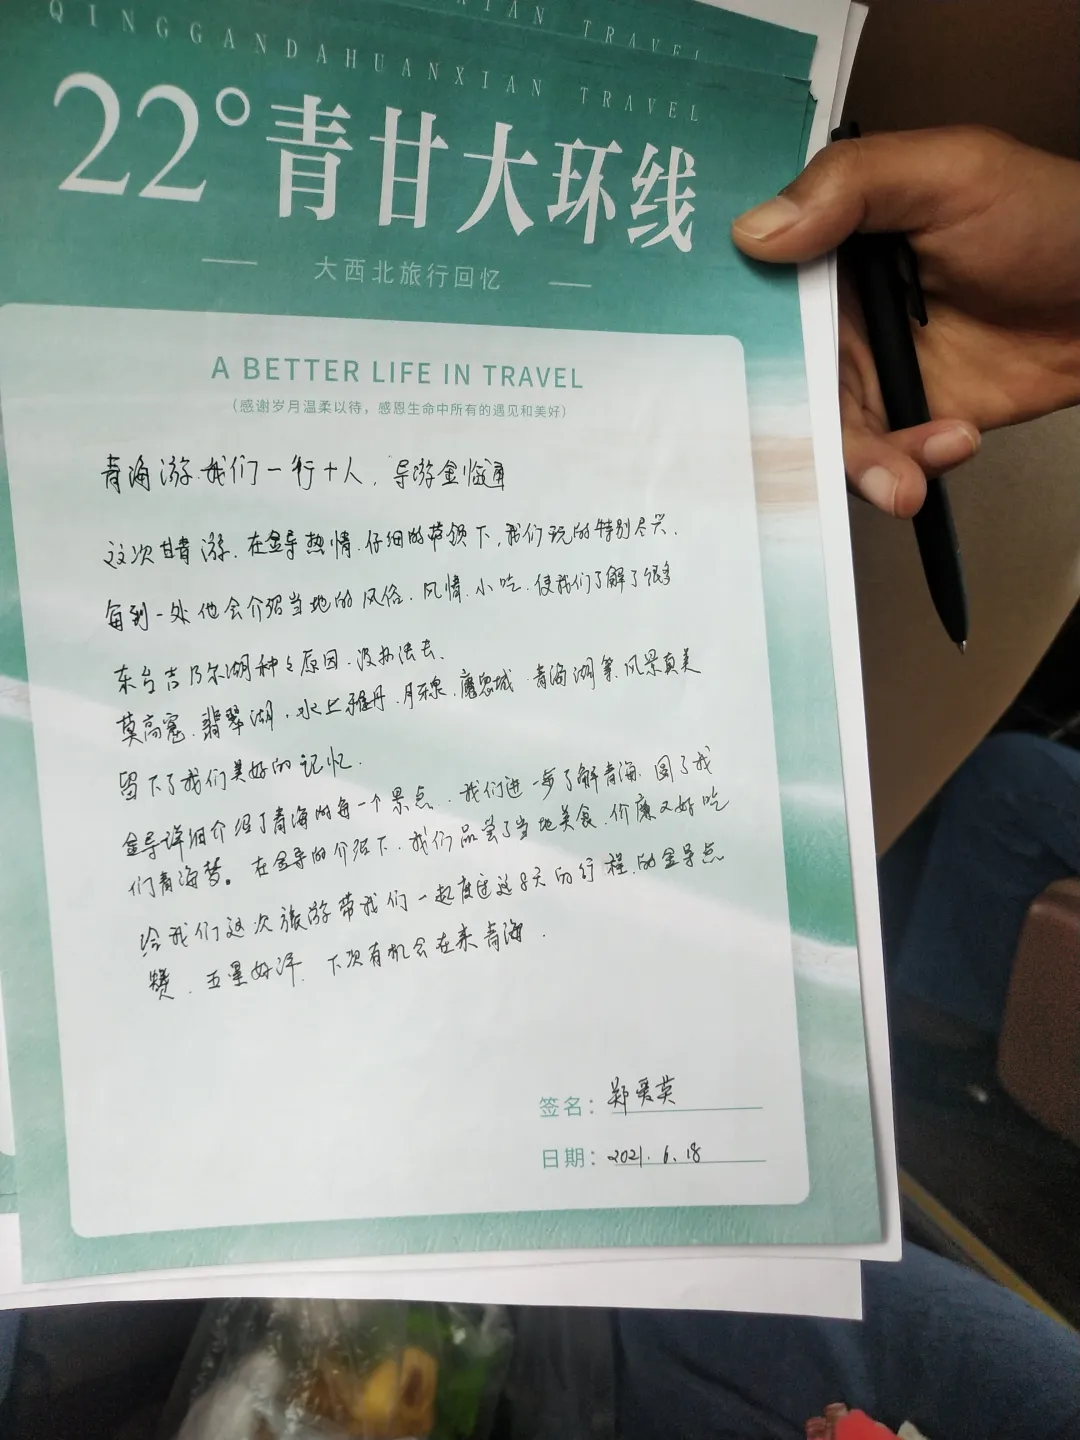 XIAN TRAVEL
QINGGANDAHUANXIAN TRAVEL
22°青甘大环线
大西北旅行回忆
A BETTER LIFE IN TRAVEL
（感谢岁月温柔以待，感恩生命中所有的遇见和美好）
青海游.我们一行十人，导游金临通
这次甘青游.在金导热情.仔细的带领下,我们玩的特别尽兴.
每到一处他会介绍当地的风俗.风情.小吃.使我们了解了很多
东台吉乃尔湖种之原因.没办法去.
莫高窟.翡翠湖.水上雅丹.月牙泉.魔鬼城.青海湖等.风景真美
留下了我们美好的记忆.
金导详细介绍了青海的每一个景点.我们进一步了解青海.圆了我
们青海梦。在金导的介绍下.我们品尝了当地美食.价廉又好吃
给我们这次旅游带我们一起度过这8天的行程.的金导点
赞.五星好评.下次有机会在来青海.
签名：郑爱英
日期：2021.6.18